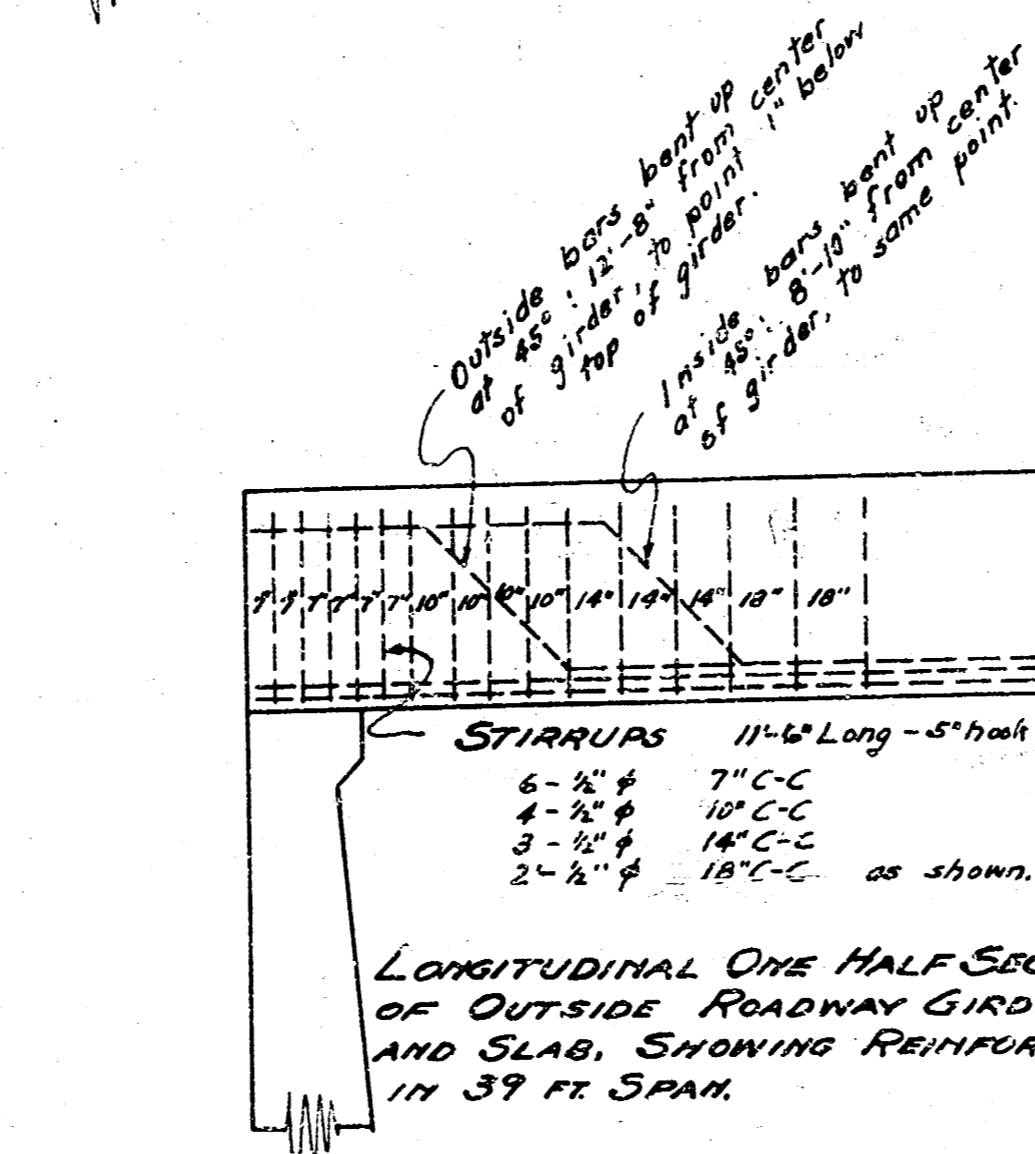 Outside bars bent up
at 45° : 12'-8" from center
of girder, to point 1" below
top of girder.
Inside bars bent up
at 45° : 8'-10" from center
of girder, to same point.
7" 7" 7" 7" 7" 7" 10" 10" 10" 10" 14" 14" 14" 18" 18"
STIRRUPS 11'-6" Long - 5" hook
6 - ½" ϕ 7" C-C
4 - ½" ϕ 10" C-C
3 - ½" ϕ 14" C-C
2 - ½" ϕ 18" C-C as shown.
LONGITUDINAL ONE HALF SEC
OF OUTSIDE ROADWAY GIRD
AND SLAB, SHOWING REINFOR
IN 39 FT. SPAN.